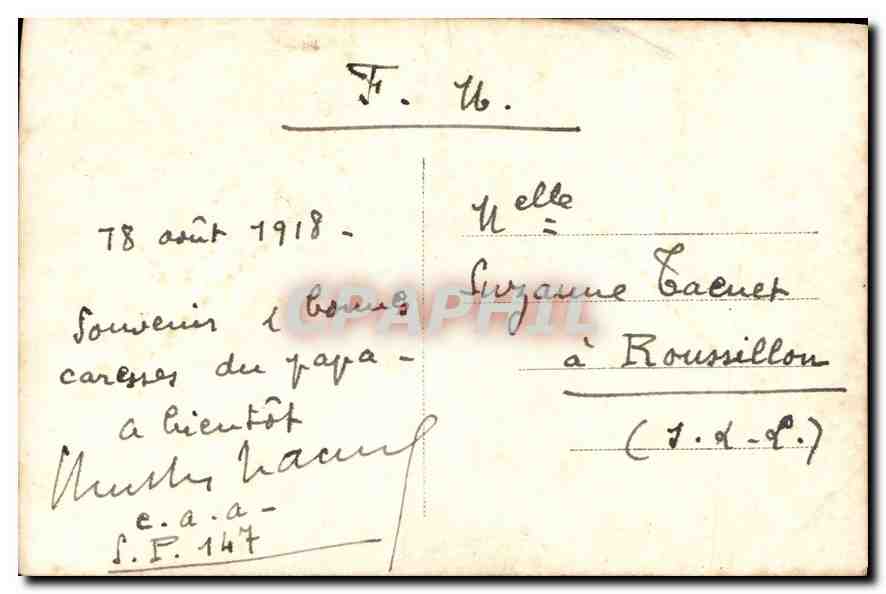 F. M.
18 août 1918 -
Souvenir & bonnes
caresses du papa -
a bientôt
c. a. a -
S. P. 147
Melle
Suzanne Tacnet
à Roussillon
(S. & L.)
CPAPHIL